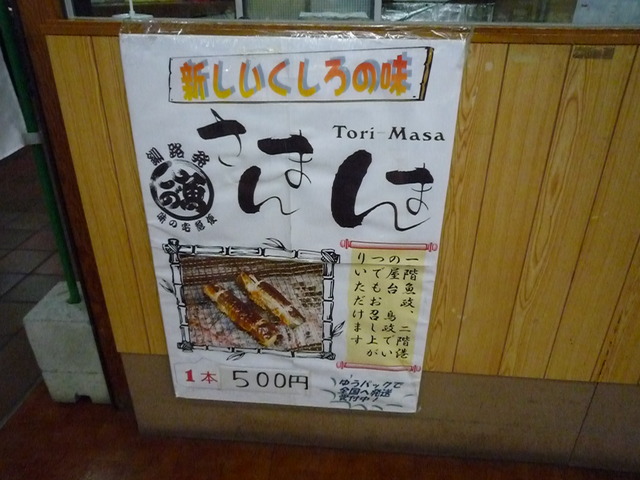 新しいくしろの味
Tori-Masa
さんまんま
釧路発
この魚
味の宅配便
一階魚政、二階港
の屋台 鳥政でい
つでもお召し上が
りいただけます
1本 500円
ゆうパックで
全国へ発送
受付中!